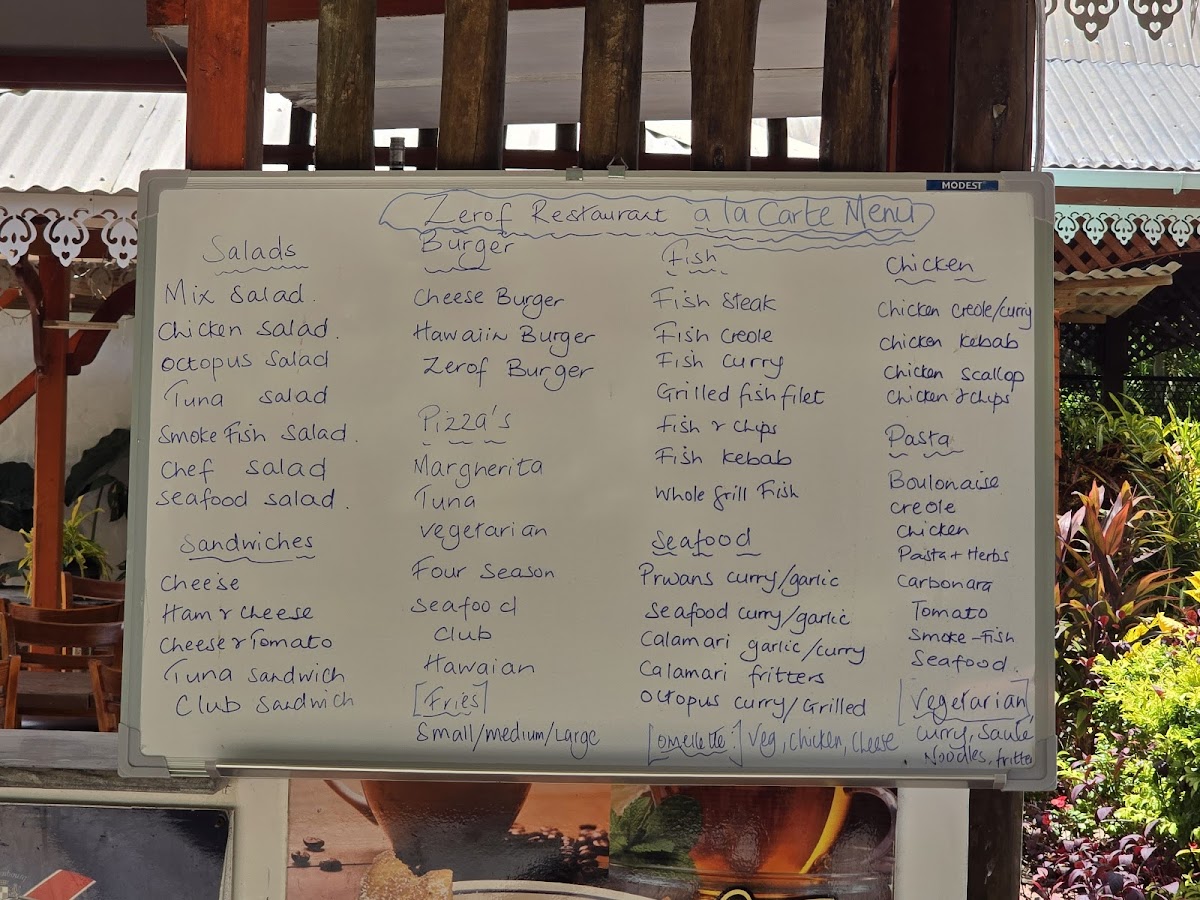 MODEST
Zerof Restaurant a la Carte Menu
Salads
Mix Salad.
Chicken Salad.
Octopus Salad
Tuna Salad
Smoke Fish Salad.
Chef Salad
Seafood Salad.
Sandwiches
Cheese
Ham & Cheese
Cheese & Tomato
Tuna Sandwich
Club Sandwich
Burger
Cheese Burger
Hawaiin Burger
Zerof Burger
Pizza's
Margherita
Tuna
Vegetarian
Four Season
Seafood
Club
Hawaian
[Fries]
Small/medium/Large
Fish
Fish Steak
Fish Creole
Fish Curry
Grilled fish filet
Fish & Chips
Fish Kebab
Whole Grill Fish
Seafood
Prwans curry/garlic
Seafood curry/garlic
Calamari garlic/curry
Calamari fritters
Octopus curry/Grilled
[Omellette:] Veg, Chicken, Cheese
Chicken
Chicken creole/curry
Chicken Kebab
Chicken Scallop
Chicken & Chips
Pasta
Boulonaise
Creole
Chicken
Pasta + Herbs
Carbonara
Tomato
Smoke-Fish
Seafood.
[Vegetarian]
Curry, Saute
Noodles, fritter